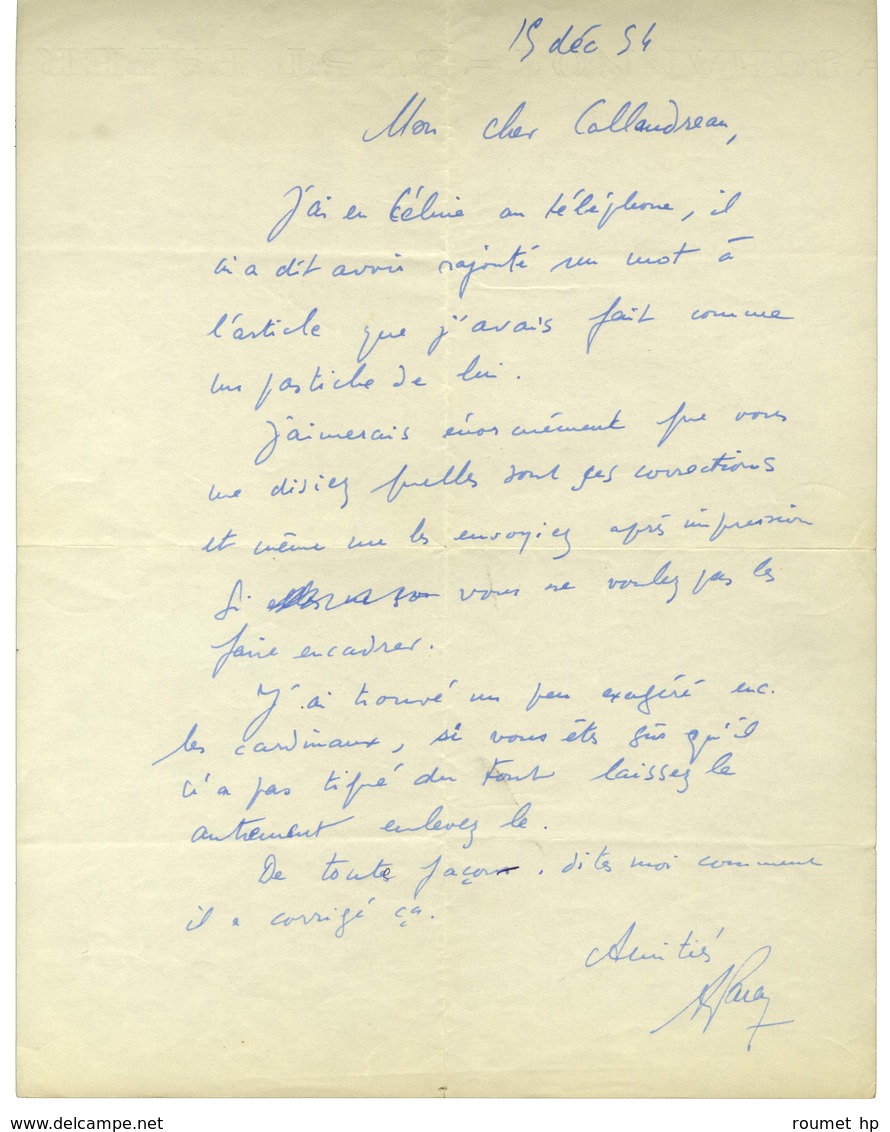 15 déc 54
Mon cher Callandreau,
J'ai eu Céline au téléphone, il
m'a dit avoir rajouté un mot à
l'article que j'avais fait comme
un pastiche de lui.
J'aimerais énormément que vous
me disiez quelles sont ses corrections
et même me les envoyiez après impression
Si vous ne voulez pas les
faire encadrer.
J'ai trouvé un peu exagéré enc.
les cardinaux, si vous êtes sûr qu'il
n'a pas tiqué du tout laissez le
autrement enlevez le.
De toutes façons, dites moi comment
il a corrigé ça.
Amitiés
APara
roumet hp
www.delcampe.net